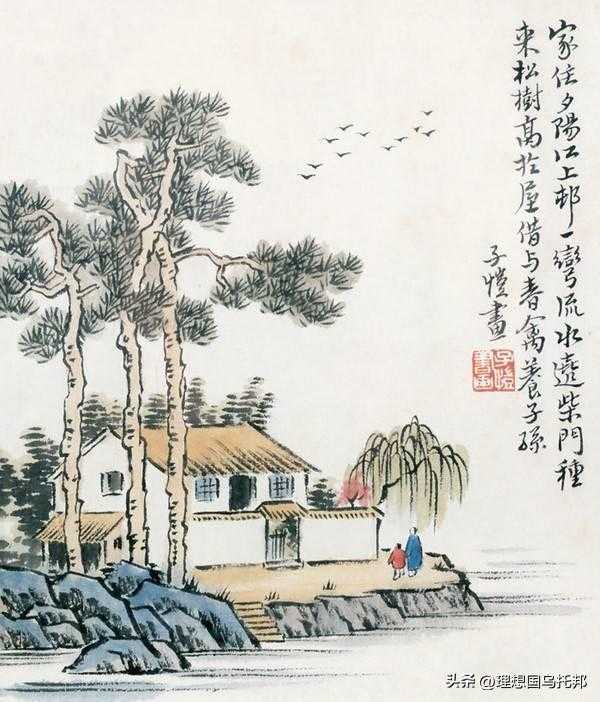 家住夕陽江上邨一彎流水遶柴門種
来松樹高於屋借与春禽養子孫
子愷畫
子愷書画
头条 @理想国乌托邦